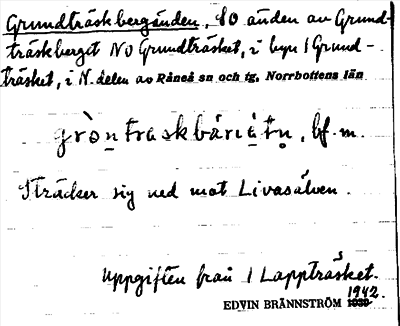 Grundträskbergänden, SO änden av Grund-
träskberget NO Grundträsket, i byn 1 Grund-
träsket, i N. delen av Råneå sn och tg. Norrbottens län
bf. m.
Sträcker sig ned mot Livasälven.
Uppgiften från 1 Lappträsket.
1942.
EDVIN BRÄNNSTRÖM 1939